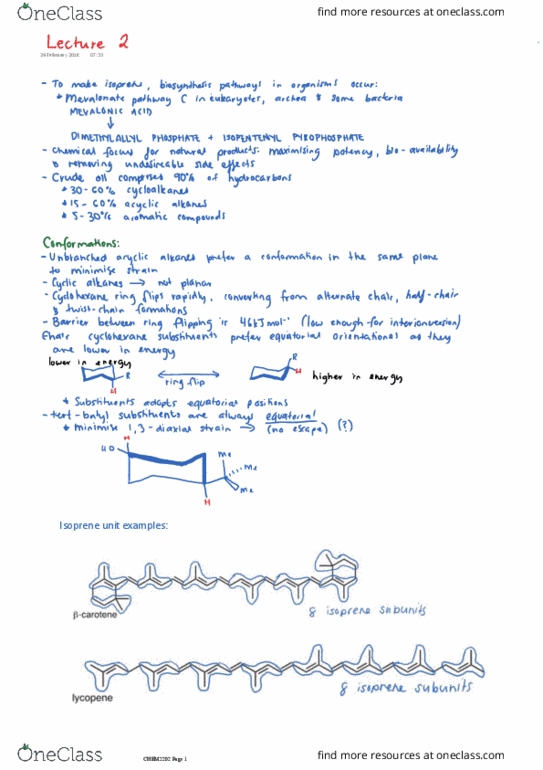 OneClass
find more resources at oneclass.com
Lecture 2
07:33
- To make isoprene, biosynthesis pathways in organisms occur:
* Mevalonate pathway C in eukaryotes, archea & some bacteria
MEVALONIC ACID
↓
DIMETHYLALLYL PHOSPHATE + ISOPENTENYL PYROPHOSPHATE
- Chemical focus for natural products: maximising potency, bio-availability
& removing undesireable side effects
- Crude oil comprises 90% of hydrocarbons
* 30-60% cycloalkanes
* 15-60% acyclic alkanes
* 5-30% aromatic compounds
Conformations:
- Unbranched acyclic alkanes prefer a conformation in the same plane
to minimise strain
- Cyclic alkanes → not planar
- Cyclohexane ring flips rapidly, converting from alternate chair, half-chair
& twist-chair formations
- Barrier between ring flipping is 46kJmol⁻¹ (low enough for interconversion)
Chair cyclohexane substituents prefer equatorial orientational as they
are lower in energy
lower in energy
R
H
ring flip
R
H
higher in energy
* Substituents adopts equatorial positions
- tert-butyl substituents are always equatorial
* minimise 1,3-diaxial strain → (no escape) (?)
H
HO
Me
Me
Me
H
Isoprene unit examples:
β-carotene
8 isoprene subunits
lycopene
8 isoprene subunits
OneClass
CHEM2202 Page 1
find more resources at oneclass.com